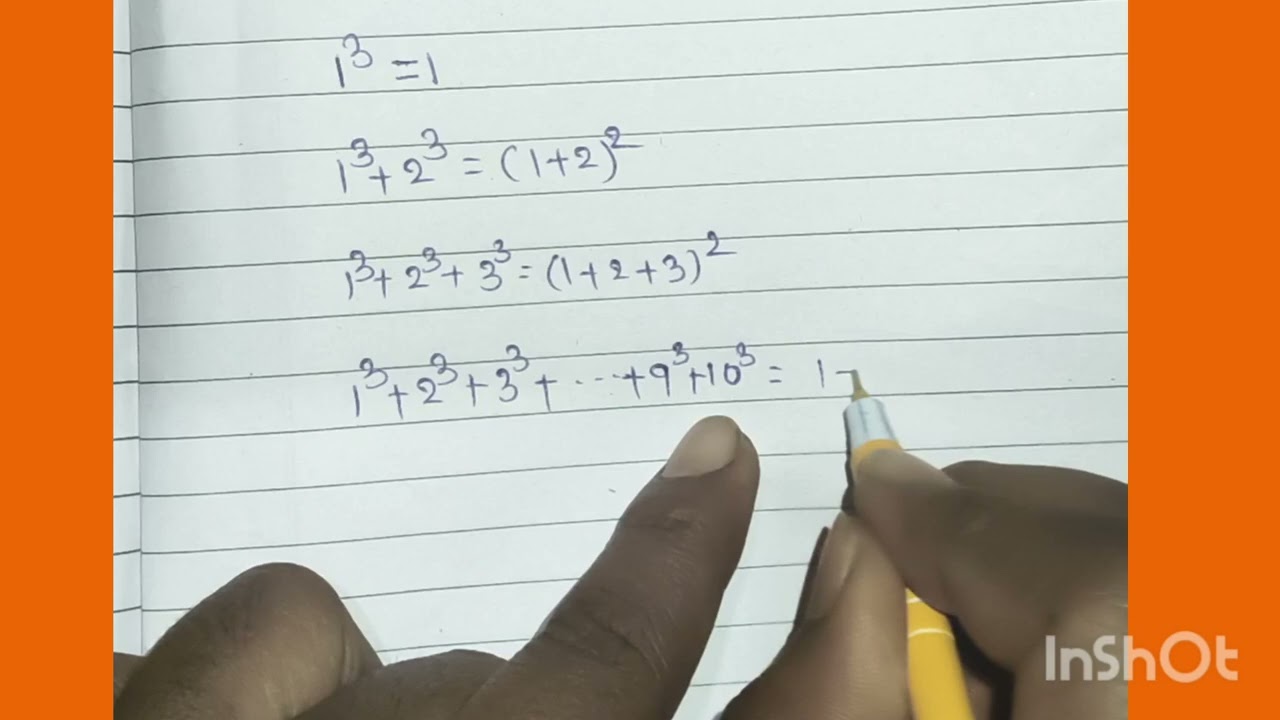 1³ = 1
1³ + 2³ = (1+2)²
1³ + 2³ + 3³ = (1+2+3)²
1³ + 2³ + 3³ + ... + 9³ + 10³ = 1 -
InShOt